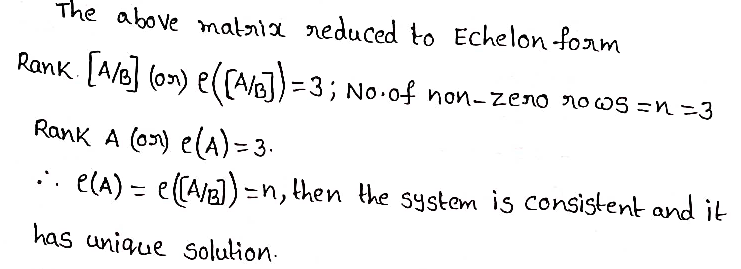 The above matrix reduced to Echelon form
Rank [A/B] (or) ρ([A/B]) = 3 ; No.of non-zero rows = n = 3
Rank A (or) ρ(A) = 3.
∴ ρ(A) = ρ([A/B]) = n, then the system is consistent and it
has unique solution.